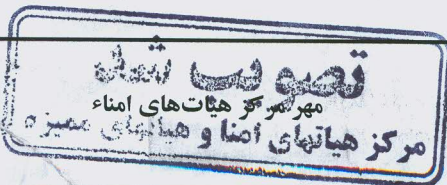 تصویب شد
مهر مرکز هیأت‌های امناء
مرکز هیاتهای امنا و هیاتهای ممیزه